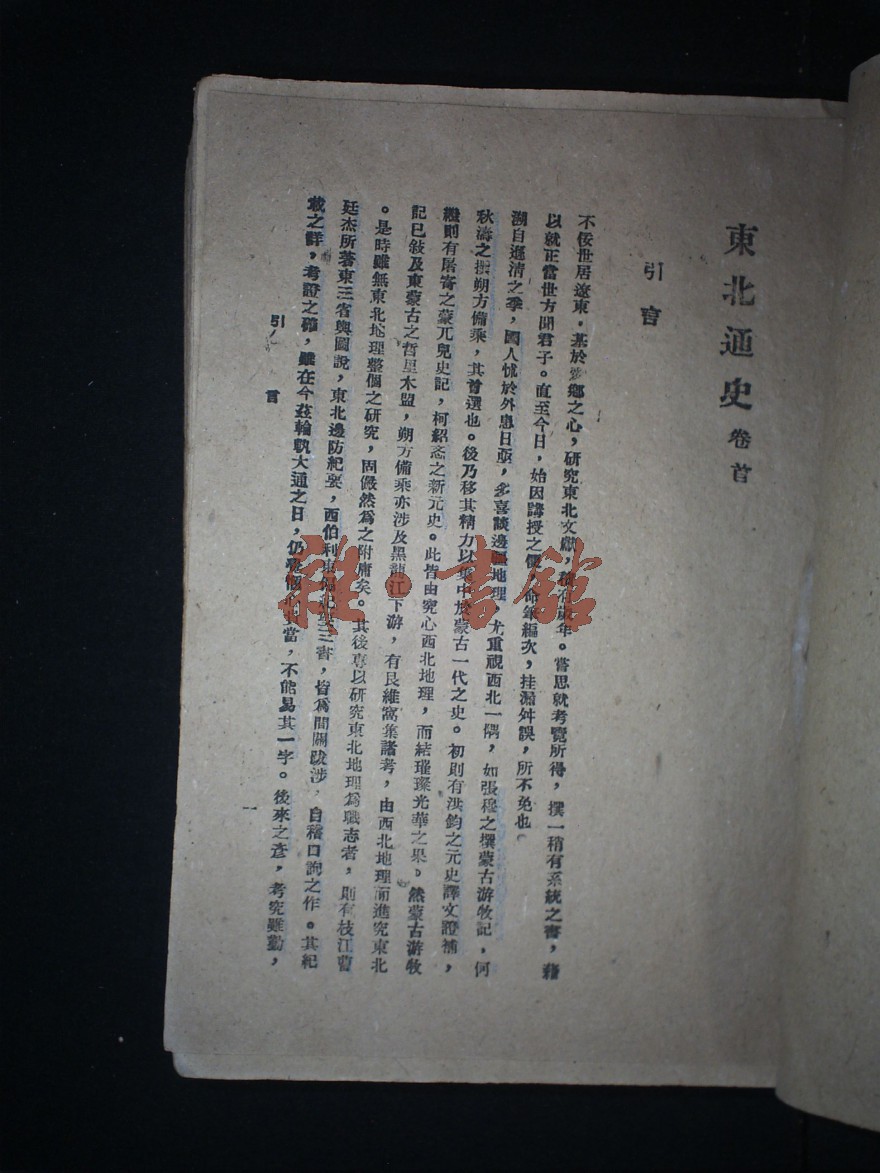 東北通史 卷首
引言
不佞世居遼東，基於愛鄉之心，研究東北文獻，積有歲年。嘗思就考覽所得，撰一稍有系統之書，藉
以就正當世方聞君子。直至今日，始因講授之便，命筆編次，挂漏舛誤，所不免也
溯自遜清之季，國人怵於外患日亟，多喜談邊疆地理，尤重視西北一隅，如張穆之撰蒙古游牧記，何
秋濤之撰朔方備乘，其首選也。後乃移其精力以集中於蒙古一代之史。初則有洪鈞之元史譯文證補，
繼則有屠寄之蒙兀兒史記，柯紹忞之新元史。此皆由究心西北地理，而結璀璨光華之果。然蒙古游牧
記已敍及東蒙古之哲里木盟，朔方備乘亦涉及黑龍江下游，有艮維窩集諸考，由西北地理而進究東北
。是時雖無東北地理整個之研究，固儼然為之附庸矣。其後專以研究東北地理為職志者，則有枝江曹
廷杰所著東三省輿圖說，東北邊防紀要，西伯利東偏紀要三書，皆為間關跋涉，自稽口詢之作。其紀
載之詳，考證之確，雖在今茲輪軌大通之日，仍當，不能易其一字。後來之彥，考究雖勤，
引言
一
雜·書館